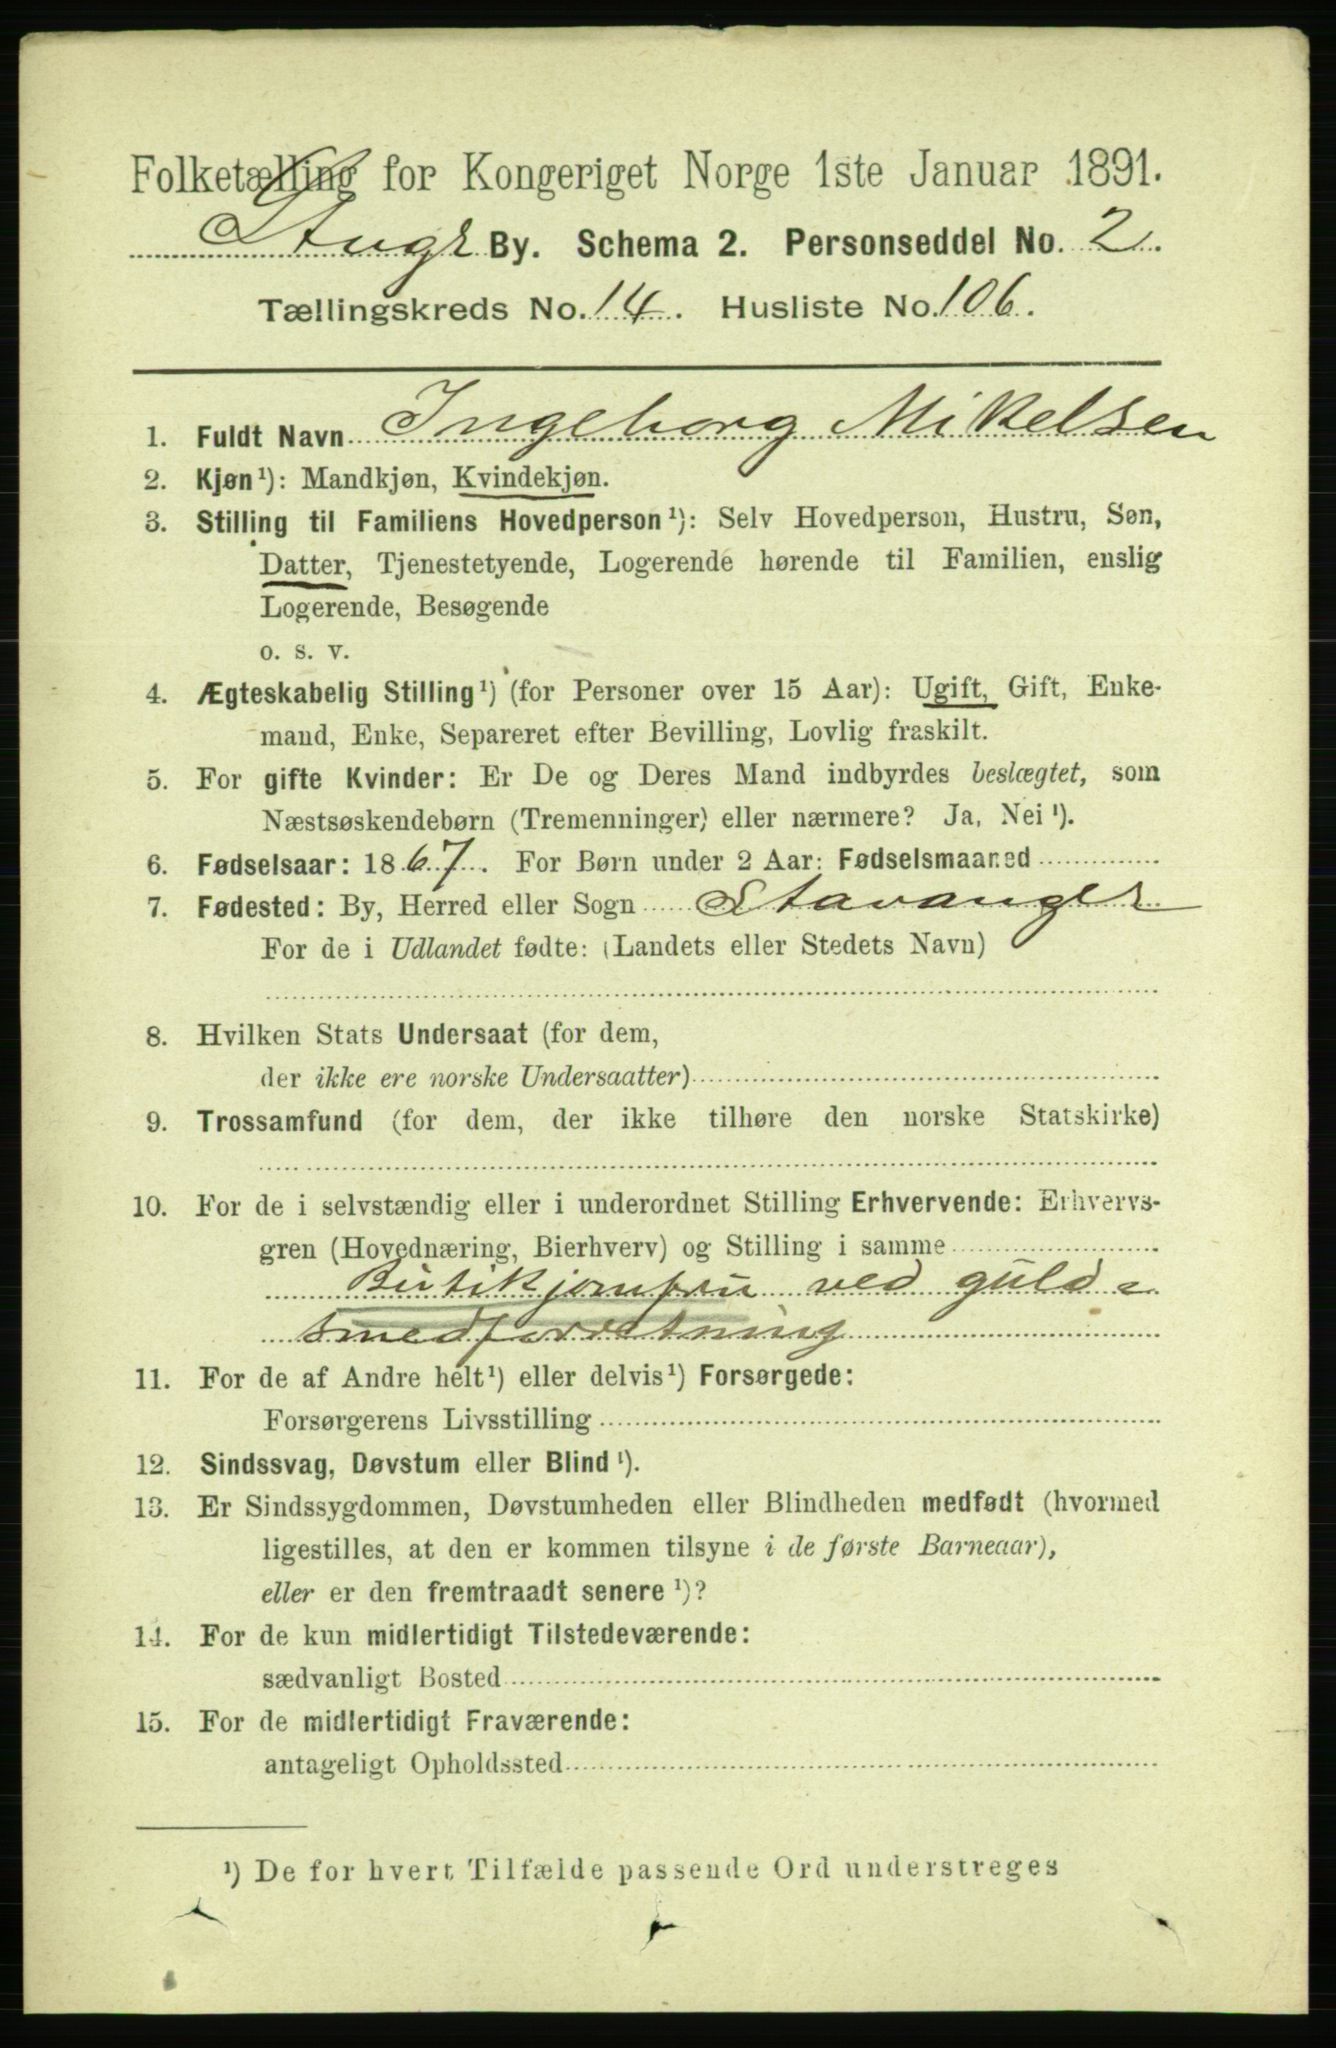 Folketælling for Kongeriget Norge 1ste Januar 1891.
By. Schema 2. Personseddel No. 2.
Tællingskreds No. 14. Husliste No. 106.
1. Fuldt Navn Ingeborg Mikelsen
2. Kjøn¹): Mandkjøn, Kvindekjøn.
3. Stilling til Familiens Hovedperson¹): Selv Hovedperson, Hustru, Søn,
Datter, Tjenestetyende, Logerende hørende til Familien, enslig
Logerende, Besøgende
o. s. v.
4. Ægteskabelig Stilling¹) (for Personer over 15 Aar): Ugift, Gift, Enke-
mand, Enke, Separeret efter Bevilling, Lovlig fraskilt.
5. For gifte Kvinder: Er De og Deres Mand indbyrdes beslægtet, som
Næstsøskendebørn (Tremenninger) eller nærmere? Ja, Nei¹).
6. Fødselsaar: 1867. For Børn under 2 Aar: Fødselsmaaned
7. Fødested: By, Herred eller Sogn Stavanger
For de i Udlandet fødte: (Landets eller Stedets Navn)
8. Hvilken Stats Undersaat (for dem,
der ikke ere norske Undersaatter)
9. Trossamfund (for dem, der ikke tilhøre den norske Statskirke)
10. For de i selvstændig eller i underordnet Stilling Erhvervende: Erhvervs-
gren (Hovednæring, Bierhverv) og Stilling i samme
Butikjomfru ved guld=
smedforretning
11. For de af Andre helt¹) eller delvis¹) Forsørgede:
Forsørgerens Livsstilling
12. Sindssvag, Døvstum eller Blind¹).
13. Er Sindssygdommen, Døvstumheden eller Blindheden medfødt (hvormed
ligestilles, at den er kommen tilsyne i de første Barneaar),
eller er den fremtraadt senere¹)?
14. For de kun midlertidigt Tilstedeværende:
sædvanligt Bosted
15. For de midlertidigt Fraværende:
antageligt Opholdssted
¹) De for hvert Tilfælde passende Ord understreges